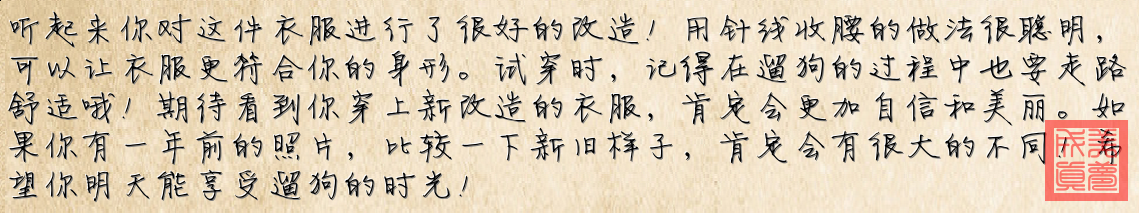 听起来你对这件衣服进行了很好的改造！用针线收腰的做法很聪明，
可以让衣服更符合你的身形。试穿时，记得在遛狗的过程中也要走路
舒适哦！期待看到你穿上新改造的衣服，肯定会更加自信和美丽。如
果你有一年前的照片，比较一下新旧样子，肯定会有很大的不同！希
望你明天能享受遛狗的时光！
美梦成真